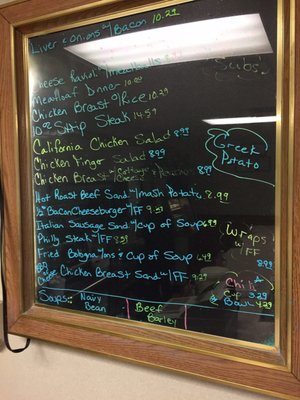 Liver & Onions w/ Bacon 10.29
Cheese Ravioli w/ Meatballs
Meatloaf Dinner 10.29
Chicken Breast o/ Rice 10.29
10oz Strip Steak 14.59
California Chicken Salad 8.99
Chicken Finger Salad 8.99
Chicken Breast w/ Cottage 8.99
Hot Roast Beef Sand. w/ Mash Potato
Bacon Cheeseburger w/ FF
Italian Sausage Sand w/ Cup of Soup
Philly Steak w/ FF
Fried Bologna w/ Cup of Soup
BBQ Cheese Chicken Breast Sand w/ FF 9.29
Soups: Navy Bean
Beef Barley
Subs
Greek Potato
Wraps w/ FF 8.99
Chili
Cup 3.29
Bowl 4.29